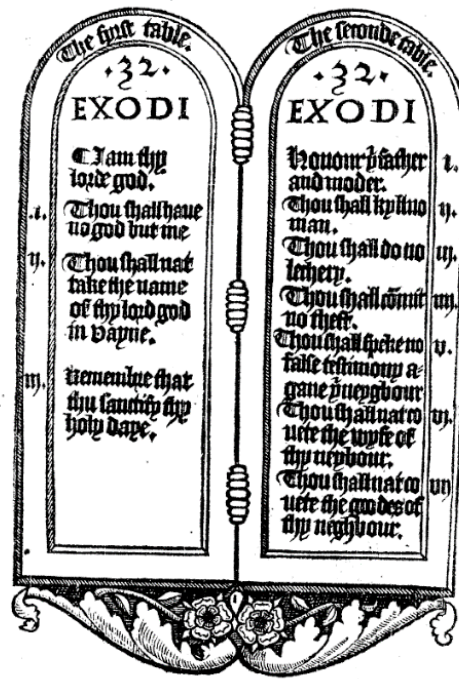 The first table.
·32·
EXODI
¶ I am thy
lorde god.
.i. Thou shall haue
no god but me
ij. Thou shall nat
take the name
of thy lord god
in vayne.
iij. Remembre that
thu sanctify thy
holy daye.
The seconde table.
·32·
EXODI
Honour yͤ father i.
and moder.
Thou shall kyll no ij.
man.
Thou shall do no iij.
lechery.
Thou shall cōmit iiij.
no theft.
Thou shall speke no v.
false testimony a-
gane yͤ neygbour
Thou shall nat co vi.
uete the wyfe of
thy neybour.
Thou shall nat co vij
uete the goodes of
thy neghbour.